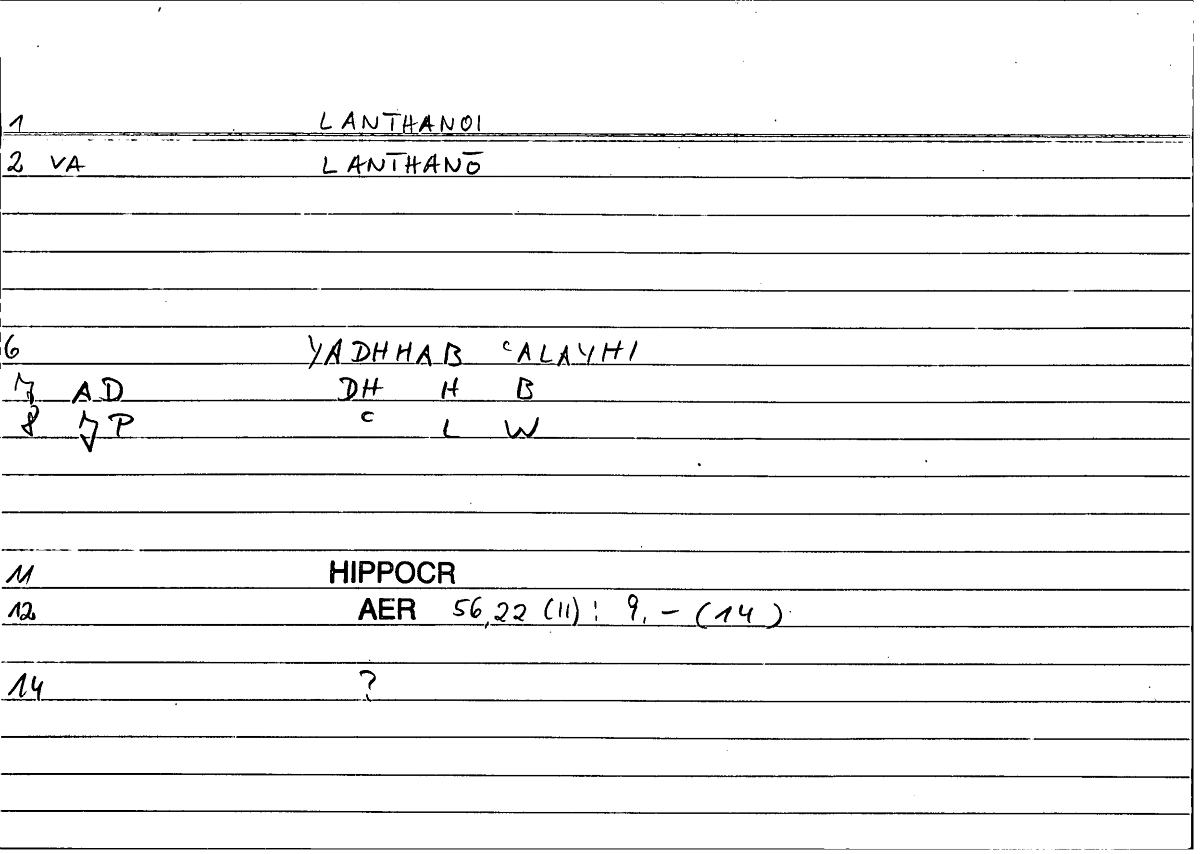 1 LANTHANOI
2 VA LANTHANŌ
6 YADHHAB ᶜALAYHI
7 AD DH H B
8 7P ᶜ L W
11 HIPPOCR
12 AER 56,22 (11): 9,-(14)
14 ?